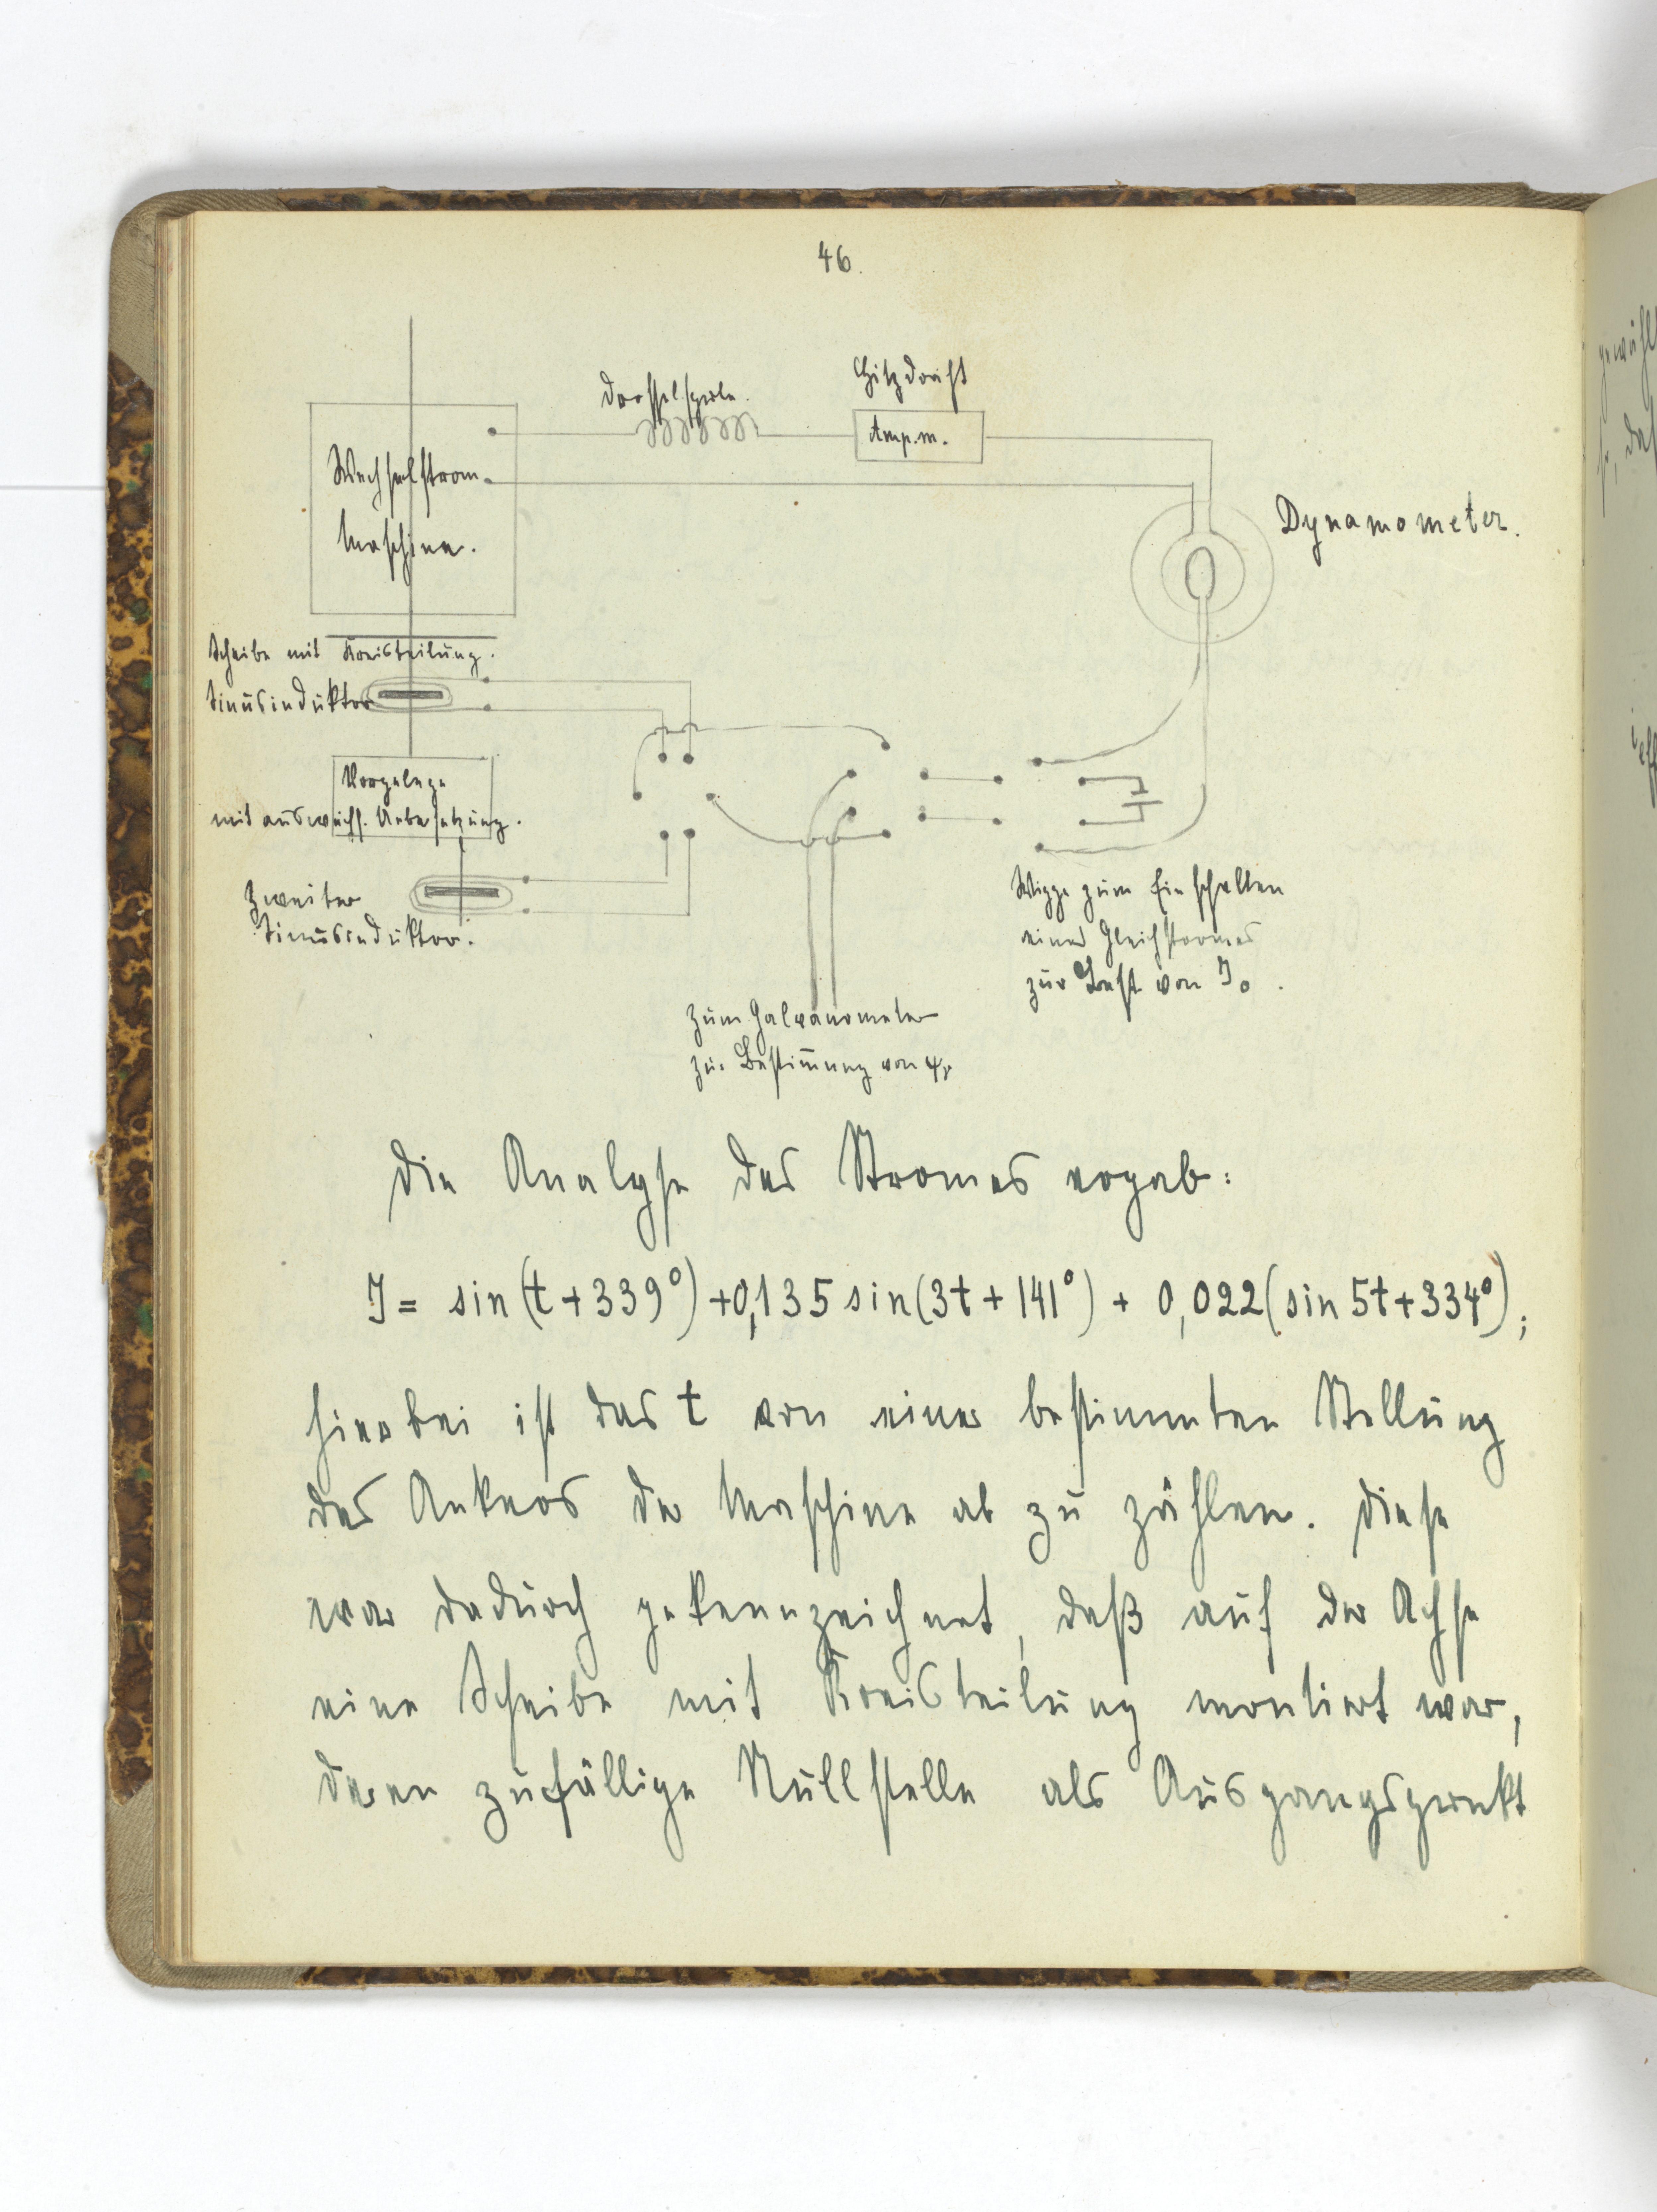 46.
Drosselspule.
Hitzdraht
Amp.m.
Wechselstrom-
Maschine.
Dynamometer.
Scheibe mit Kreisteilung.
Sinusinduktor
Vorgelege
mit auswechs. Uebersetzung.
Zweiter
Sinusinduktor.
Wippe zum Einschalten
eines Gleichstromes
zur Best. von J₀.
Zum Galvanometer
zur Bestim̄ung von φᵥ
Die Analyse des Stromes ergab:
J = sin(t+339°)+0,135 sin(3t+141°) + 0,022(sin 5t+334°);
hierbei ist das t von einer bestimmten Stellung
des Ankers der Maschine ab zu zählen. Diese
war dadurch gekennzeichnet, daß auf der Achse
eine Scheibe mit Kreisteilung montiert war,
deren zufällige Nullstelle als Ausgangspunkt